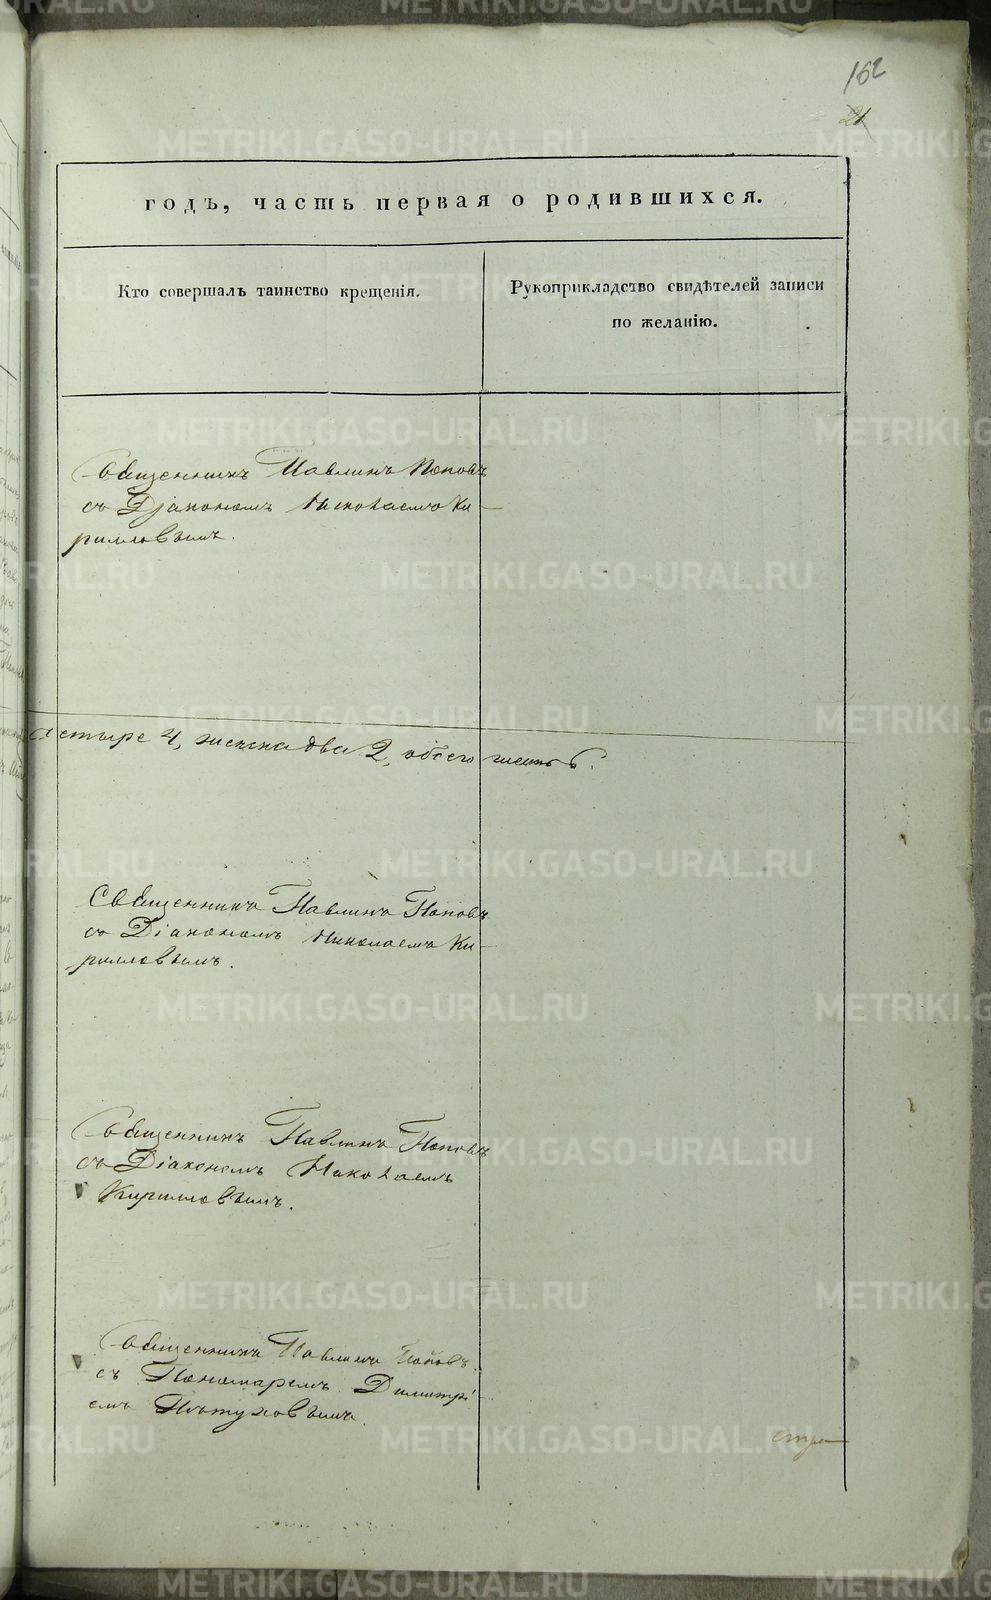 162
21
годъ, часть первая о родившихся.
Кто совершалъ таинство крещенія.
Рукоприкладство свидѣтелей записи
по желанію.
Священникъ Павлинъ Поповъ
съ Діакономъ Николаемъ Ки-
рилловымъ.
четыре 4, женска два 2, обоего шесть 6.
Священникъ Павлинъ Поповъ
съ Діакономъ Николаемъ Ки-
рилловымъ.
Священникъ Павлинъ Поповъ
съ Діакономъ Николаемъ
Кирилловымъ.
Священникъ Павлинъ Поповъ
съ Пономаремъ Димитрі-
емъ Пѣтуховымъ.
METRIKI.GASO-URAL.RU